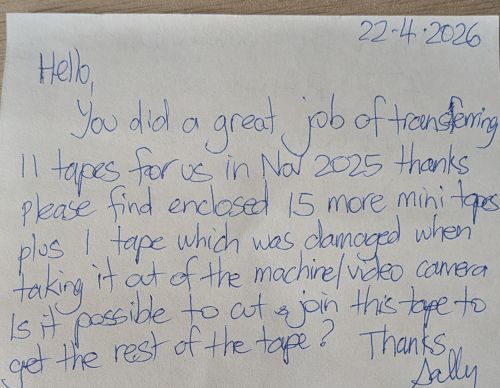 22.4.2026
Hello,
You did a great job of transferring
11 tapes for us in Nov 2025 thanks
please find enclosed 15 more mini tapes
plus 1 tape which was damaged when
taking it out of the machine/video camera
Is it possible to cut & join this tape to
get the rest of the tape? Thanks
Sally